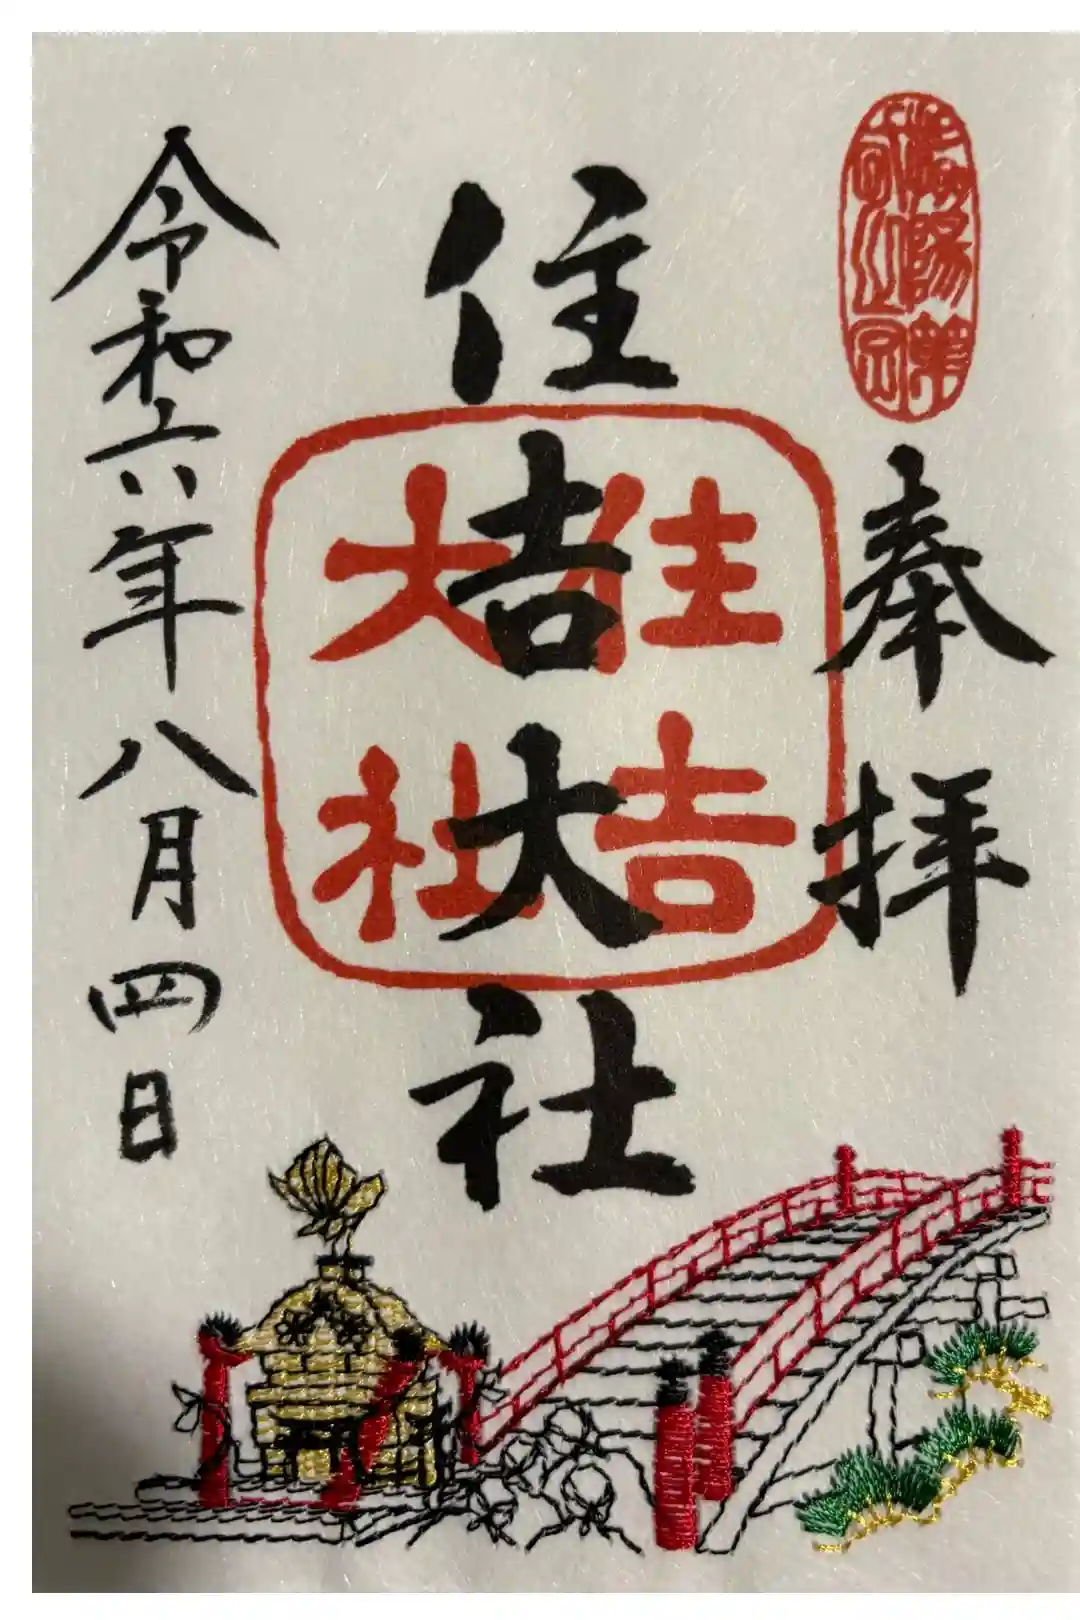 奉拝
住吉大社
住吉
大社
令和六年八月四日